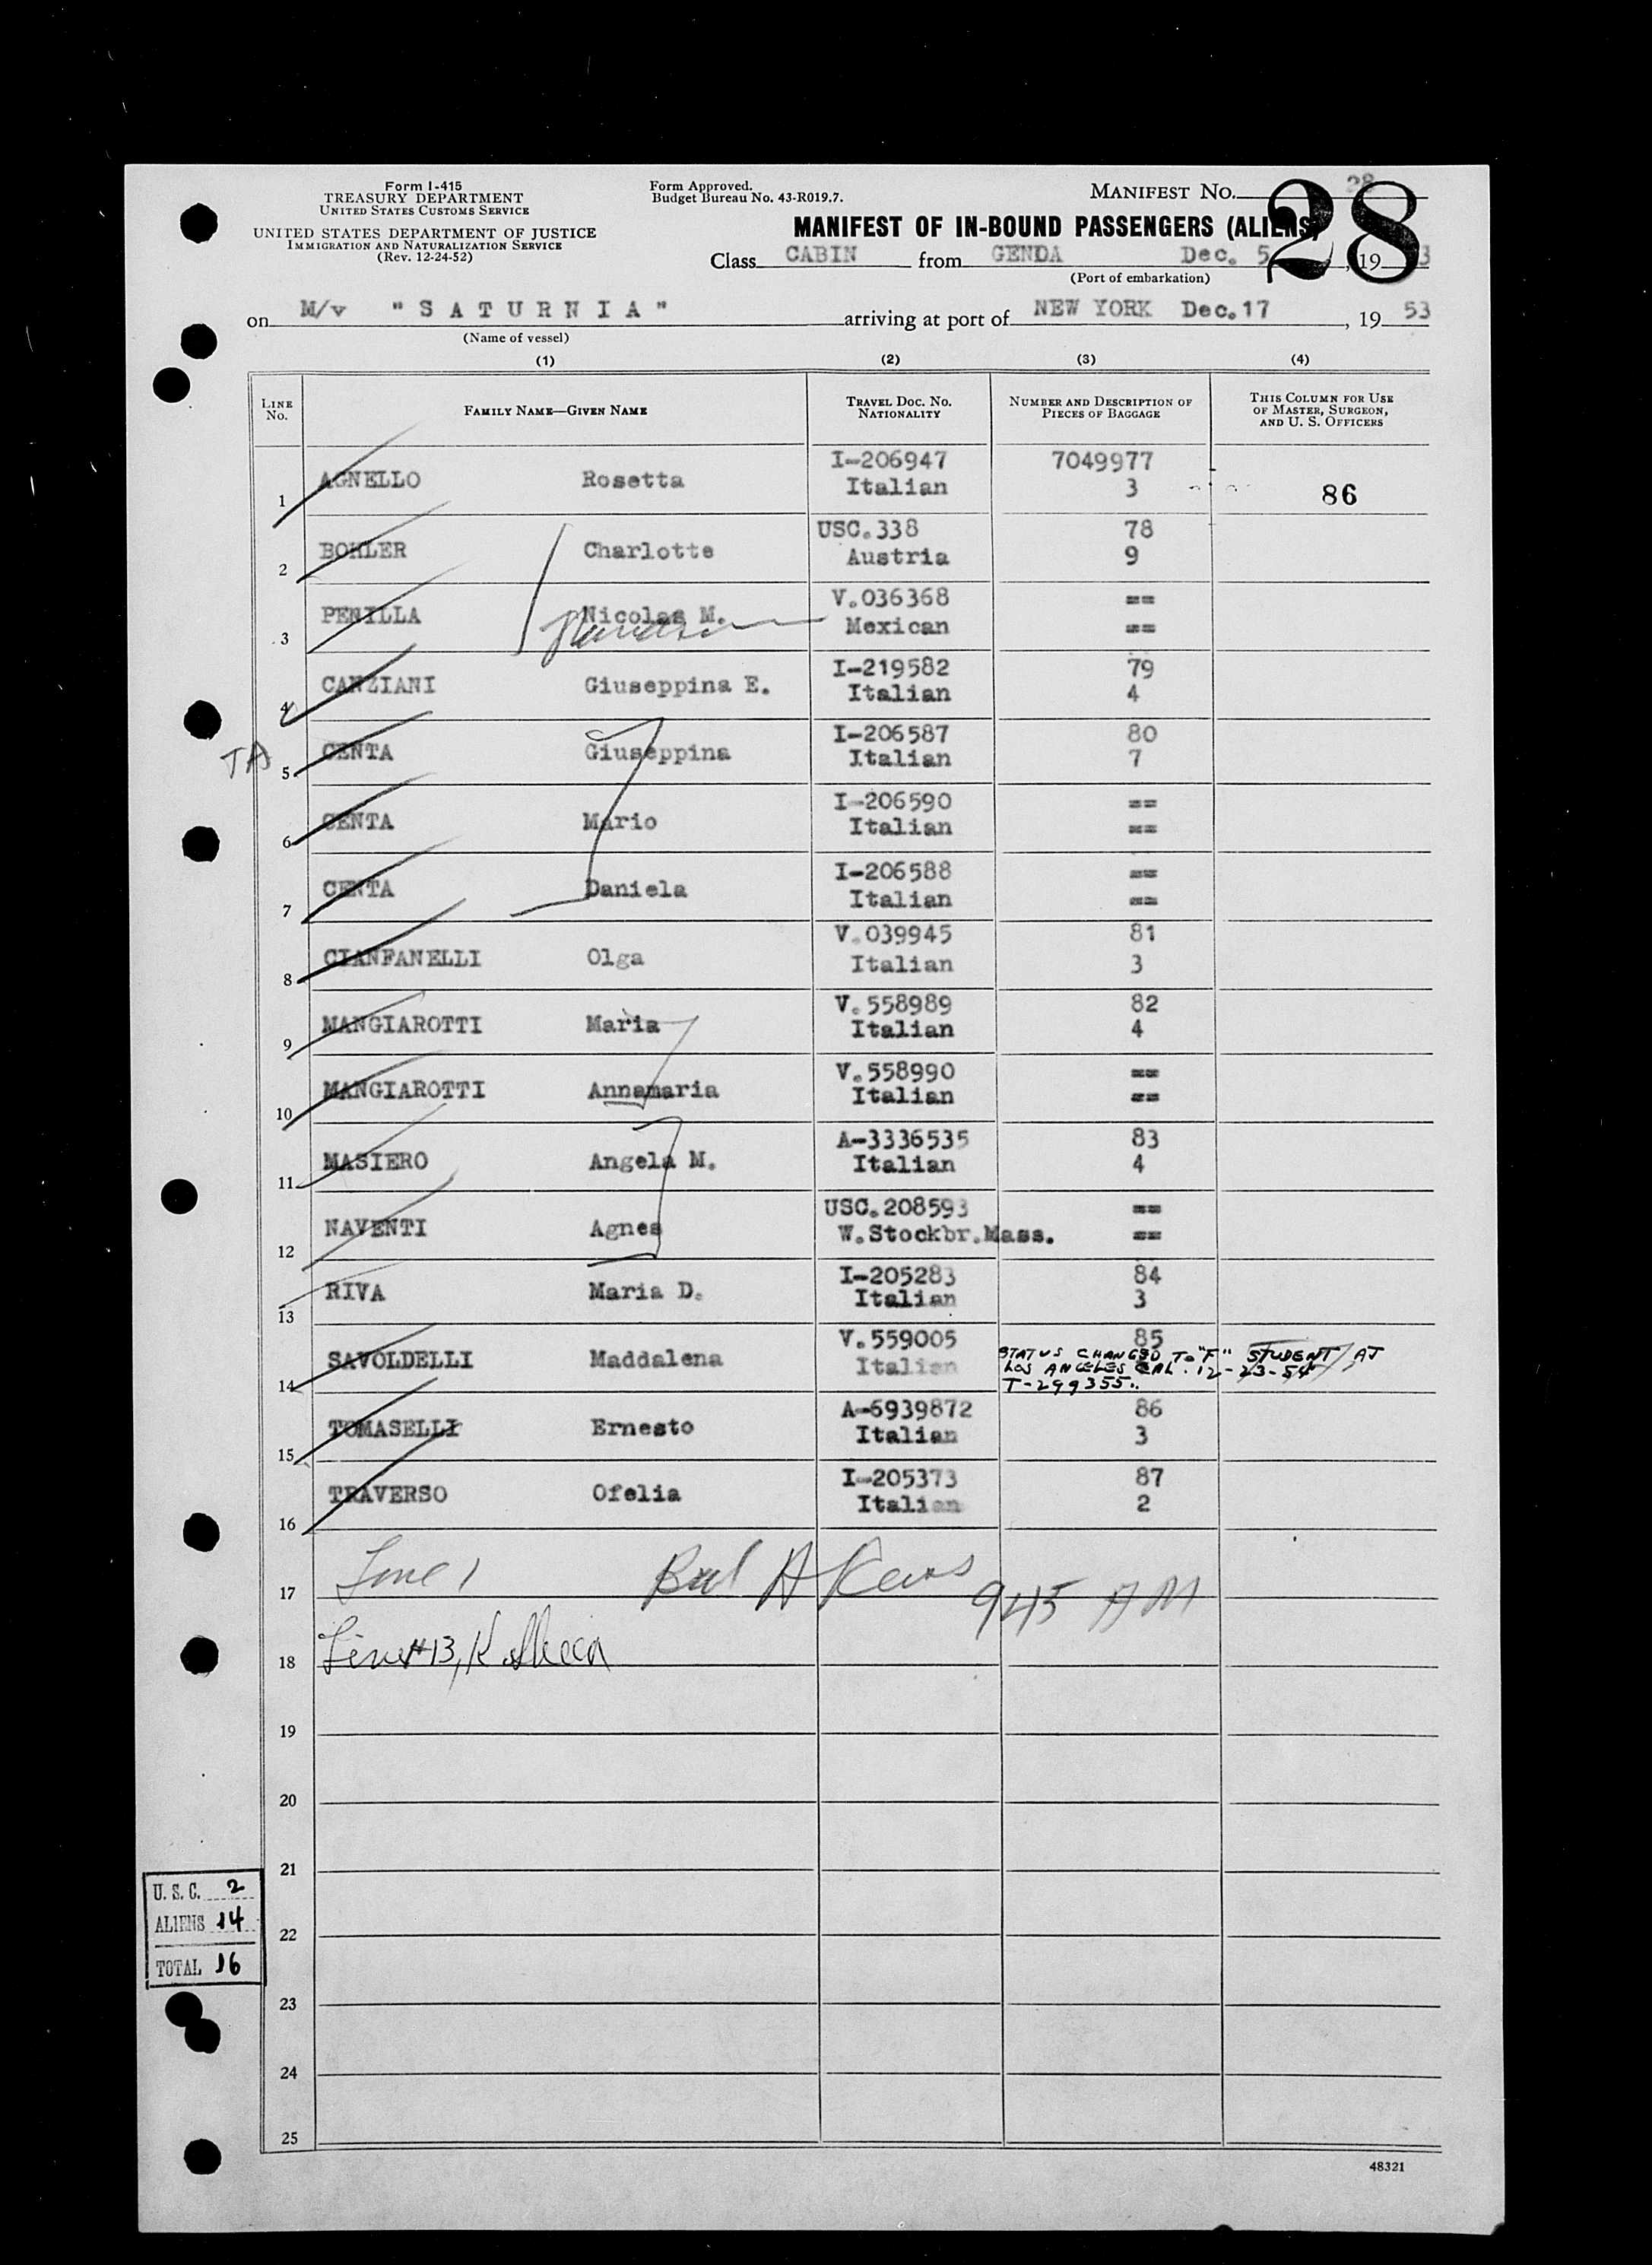 Form I-415
TREASURY DEPARTMENT
UNITED STATES CUSTOMS SERVICE
UNITED STATES DEPARTMENT OF JUSTICE
IMMIGRATION AND NATURALIZATION SERVICE
(Rev. 12-24-52)
Form Approved.
Budget Bureau No. 43-R019.7.
MANIFEST NO. 28
28
MANIFEST OF IN-BOUND PASSENGERS (ALIENS)
Class CABIN from GENOA Dec. 5, 1953
(Port of embarkation)
on M/v "SATURNIA" arriving at port of NEW YORK Dec.17, 19 53
(Name of vessel)
(1) (2) (3) (4)
LINE No. FAMILY NAME—GIVEN NAME TRAVEL DOC. NO. NATIONALITY NUMBER AND DESCRIPTION OF PIECES OF BAGGAGE THIS COLUMN FOR USE OF MASTER, SURGEON, AND U. S. OFFICERS
1 AGNELLO Rosetta I-206947 Italian 7049977 3 86
2 BOHLER Charlotte USC.338 Austria 78 9
3 PENILLA Nicolas M. V.036368 Mexican == ==
4 CANZIANI Giuseppina E. I-219582 Italian 79 4
TA 5 CENTA Giuseppina I-206587 Italian 80 7
6 CENTA Mario I-206590 Italian == ==
7 CENTA Daniela I-206588 Italian == ==
8 CIANFANELLI Olga V.039945 Italian 81 3
9 MANGIAROTTI Maria V.558989 Italian 82 4
10 MANGIAROTTI Annamaria V.558990 Italian == ==
11 MASIERO Angela M. A-3336535 Italian 83 4
12 NAVENTI Agnes USC.208593 W.Stockbr.Mass. == ==
13 RIVA Maria D. I-205283 Italian 84 3
14 SAVOLDELLI Maddalena V.559005 Italian 85
STATUS CHANGED TO "F" STUDENT AT
LOS ANGELES CAL. 12-23-54
T-299355.
15 TOMASELLI Ernesto A-6939872 Italian 86 3
16 TRAVERSO Ofelia I-205373 Italian 87 2
17 Line 1 945 AM
18 Line #13,
19
20
21
U.S.C. 2
ALIENS 14
TOTAL 16
22
23
24
25
48321